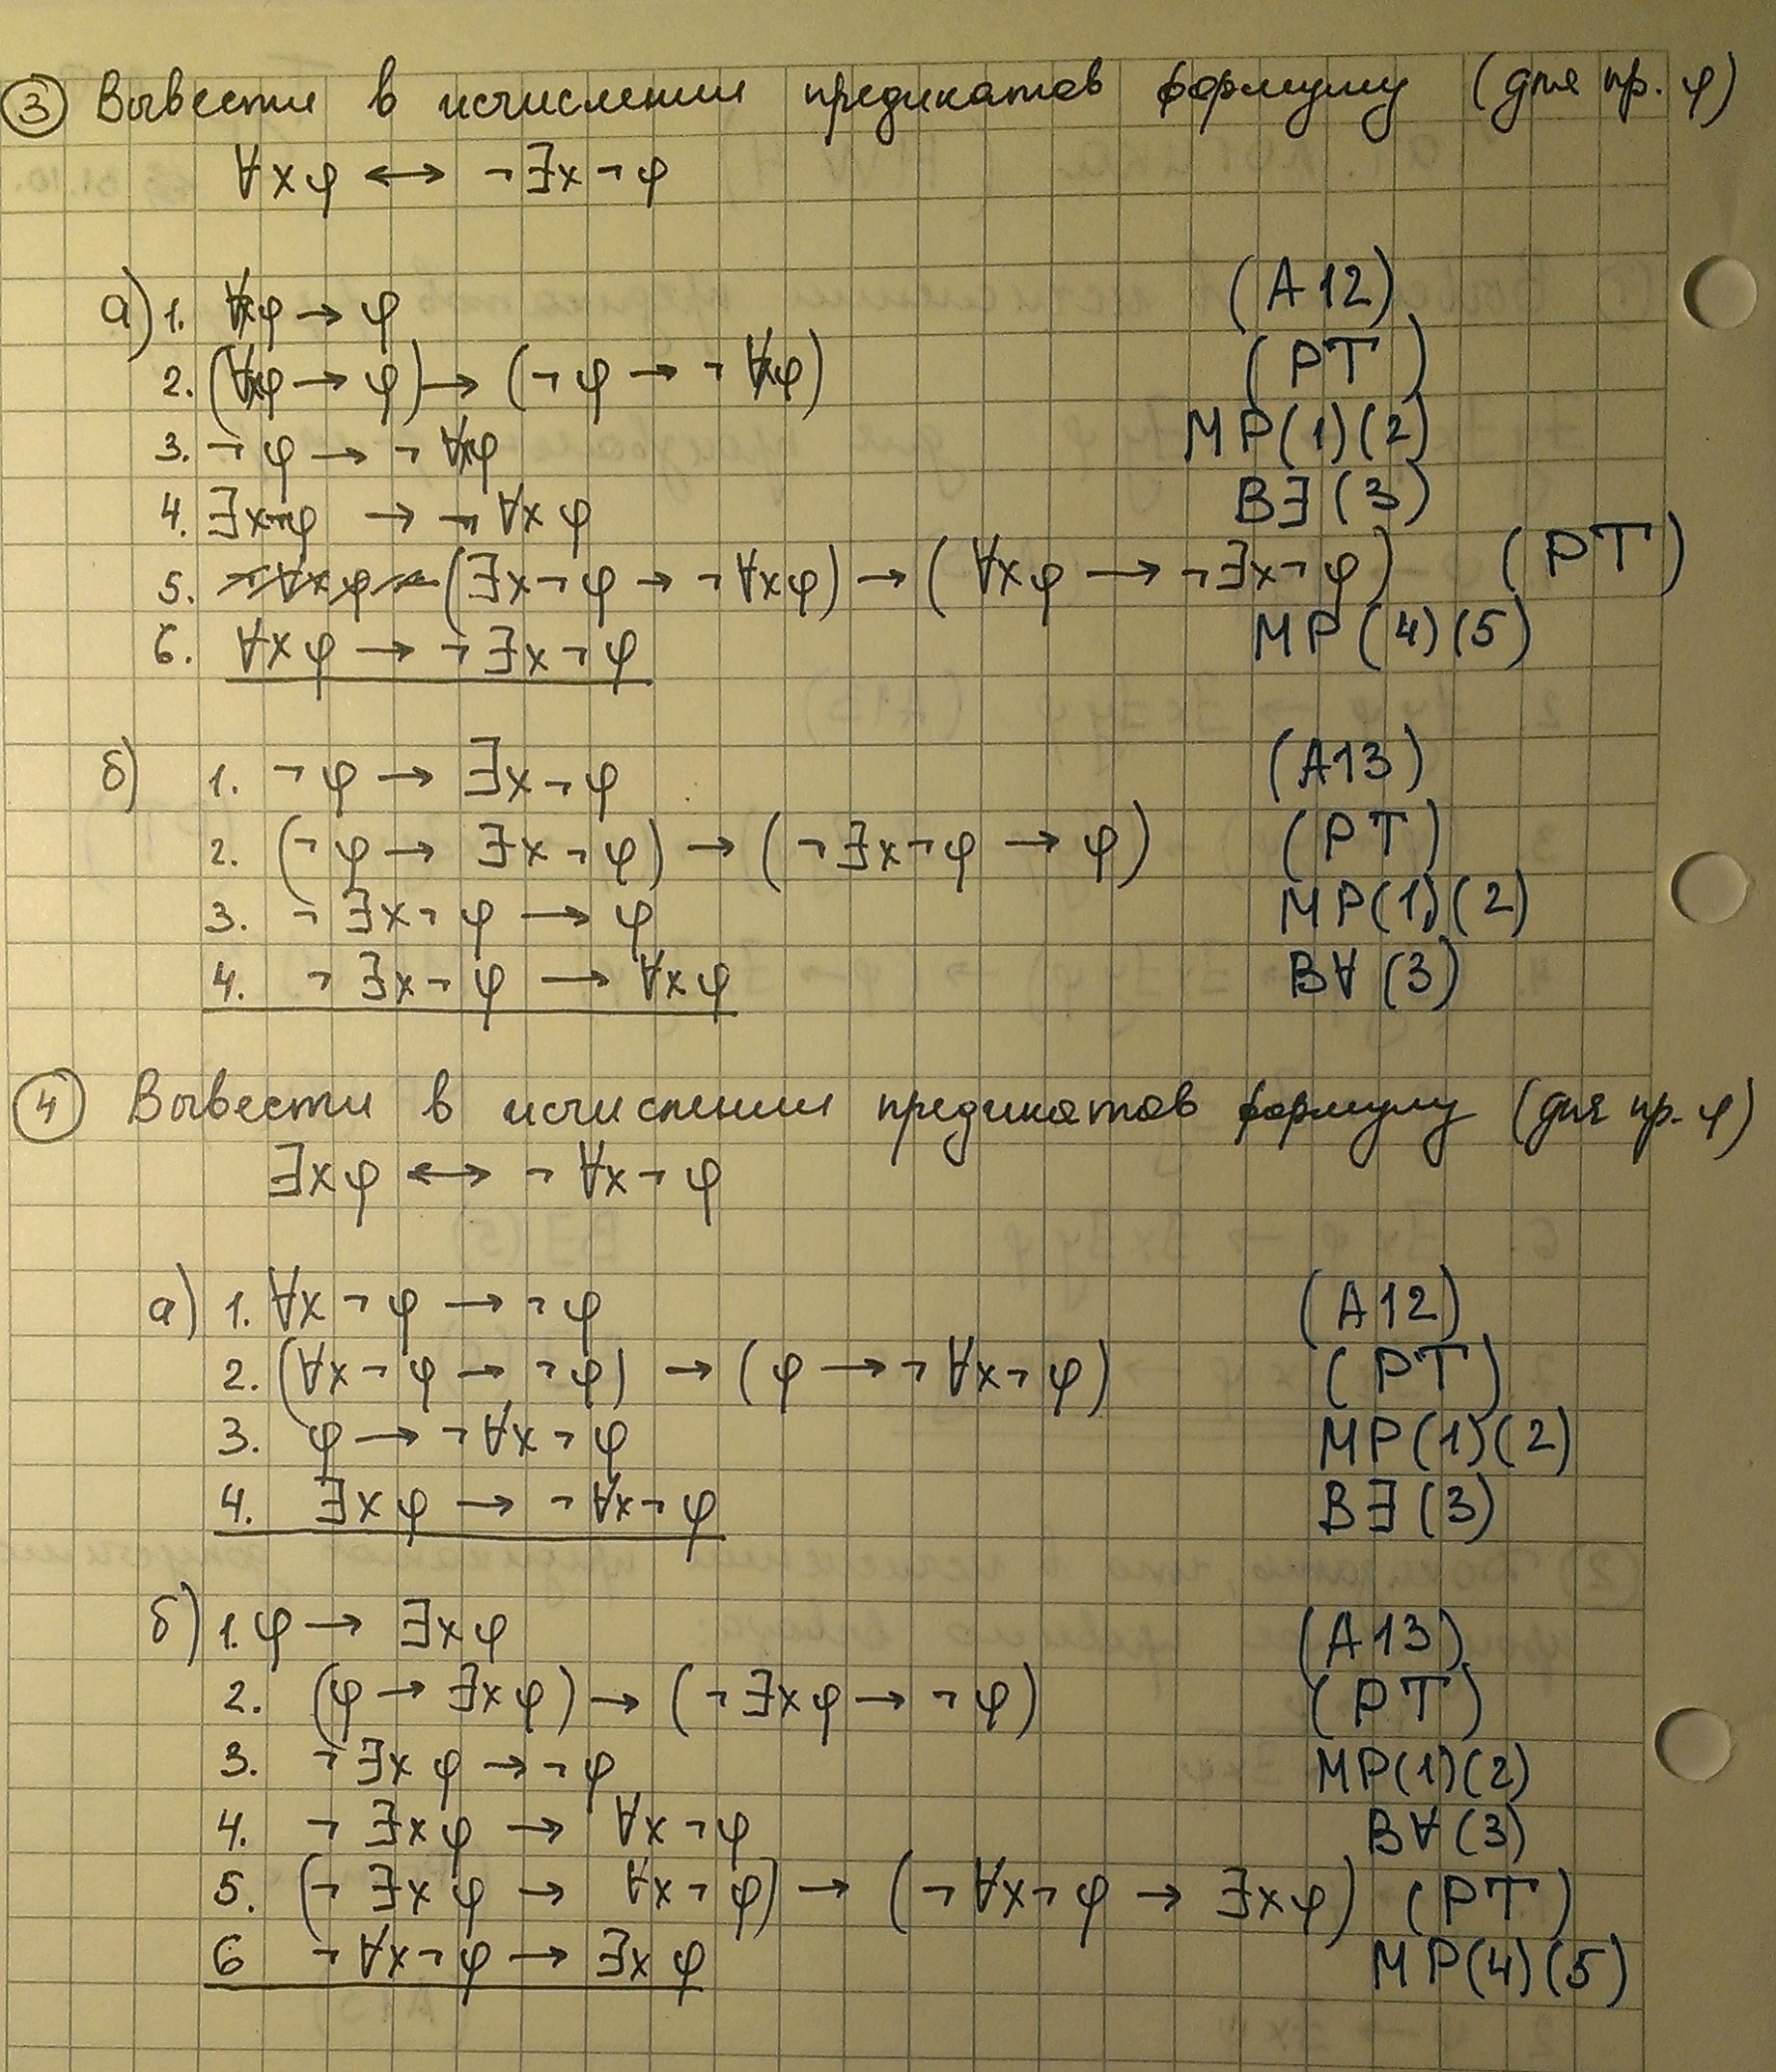 ③ Вывести в исчислении предикатов формулу (для пр. φ)
∀xφ ↔ ¬∃x¬φ
а) 1. ∀xφ → φ (A12)
2. (∀xφ → φ) → (¬φ → ¬∀xφ) (PT)
3. ¬φ → ¬∀xφ MP(1)(2)
4. ∃x¬φ → ¬∀xφ B∃(3)
5. (∃x¬φ → ¬∀xφ) → (∀xφ → ¬∃x¬φ) (PT)
6. ∀xφ → ¬∃x¬φ MP(4)(5)
б) 1. ¬φ → ∃x¬φ (A13)
2. (¬φ → ∃x¬φ) → (¬∃x¬φ → φ) (PT)
3. ¬∃x¬φ → φ MP(1)(2)
4. ¬∃x¬φ → ∀xφ B∀(3)
④ Вывести в исчислении предикатов формулу (для пр. φ)
∃xφ ↔ ¬∀x¬φ
а) 1. ∀x¬φ → ¬φ (A12)
2. (∀x¬φ → ¬φ) → (φ → ¬∀x¬φ) (PT)
3. φ → ¬∀x¬φ MP(1)(2)
4. ∃xφ → ¬∀x¬φ B∃(3)
б) 1. φ → ∃xφ (A13)
2. (φ → ∃xφ) → (¬∃xφ → ¬φ) (PT)
3. ¬∃xφ → ¬φ MP(1)(2)
4. ¬∃xφ → ∀x¬φ B∀(3)
5. (¬∃xφ → ∀x¬φ) → (¬∀x¬φ → ∃xφ) (PT)
6 ¬∀x¬φ → ∃xφ MP(4)(5)